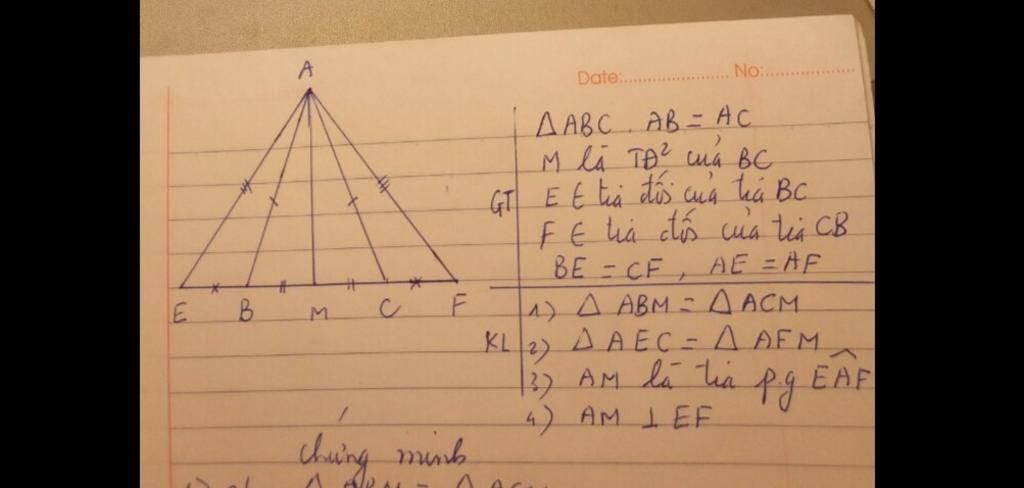 Date:.................... No:....................
A
E B M C F
GT
Δ ABC . AB = AC
M là TĐ² của BC
E ∈ tia đối của tia BC
F ∈ tia đối của tia CB
BE = CF , AE = AF
KL
1) Δ ABM = Δ ACM
2) Δ AEC = Δ AFM
3) AM là tia p.g EÂF
4) AM ⊥ EF
chứng minh
Δ ABM = Δ ACM